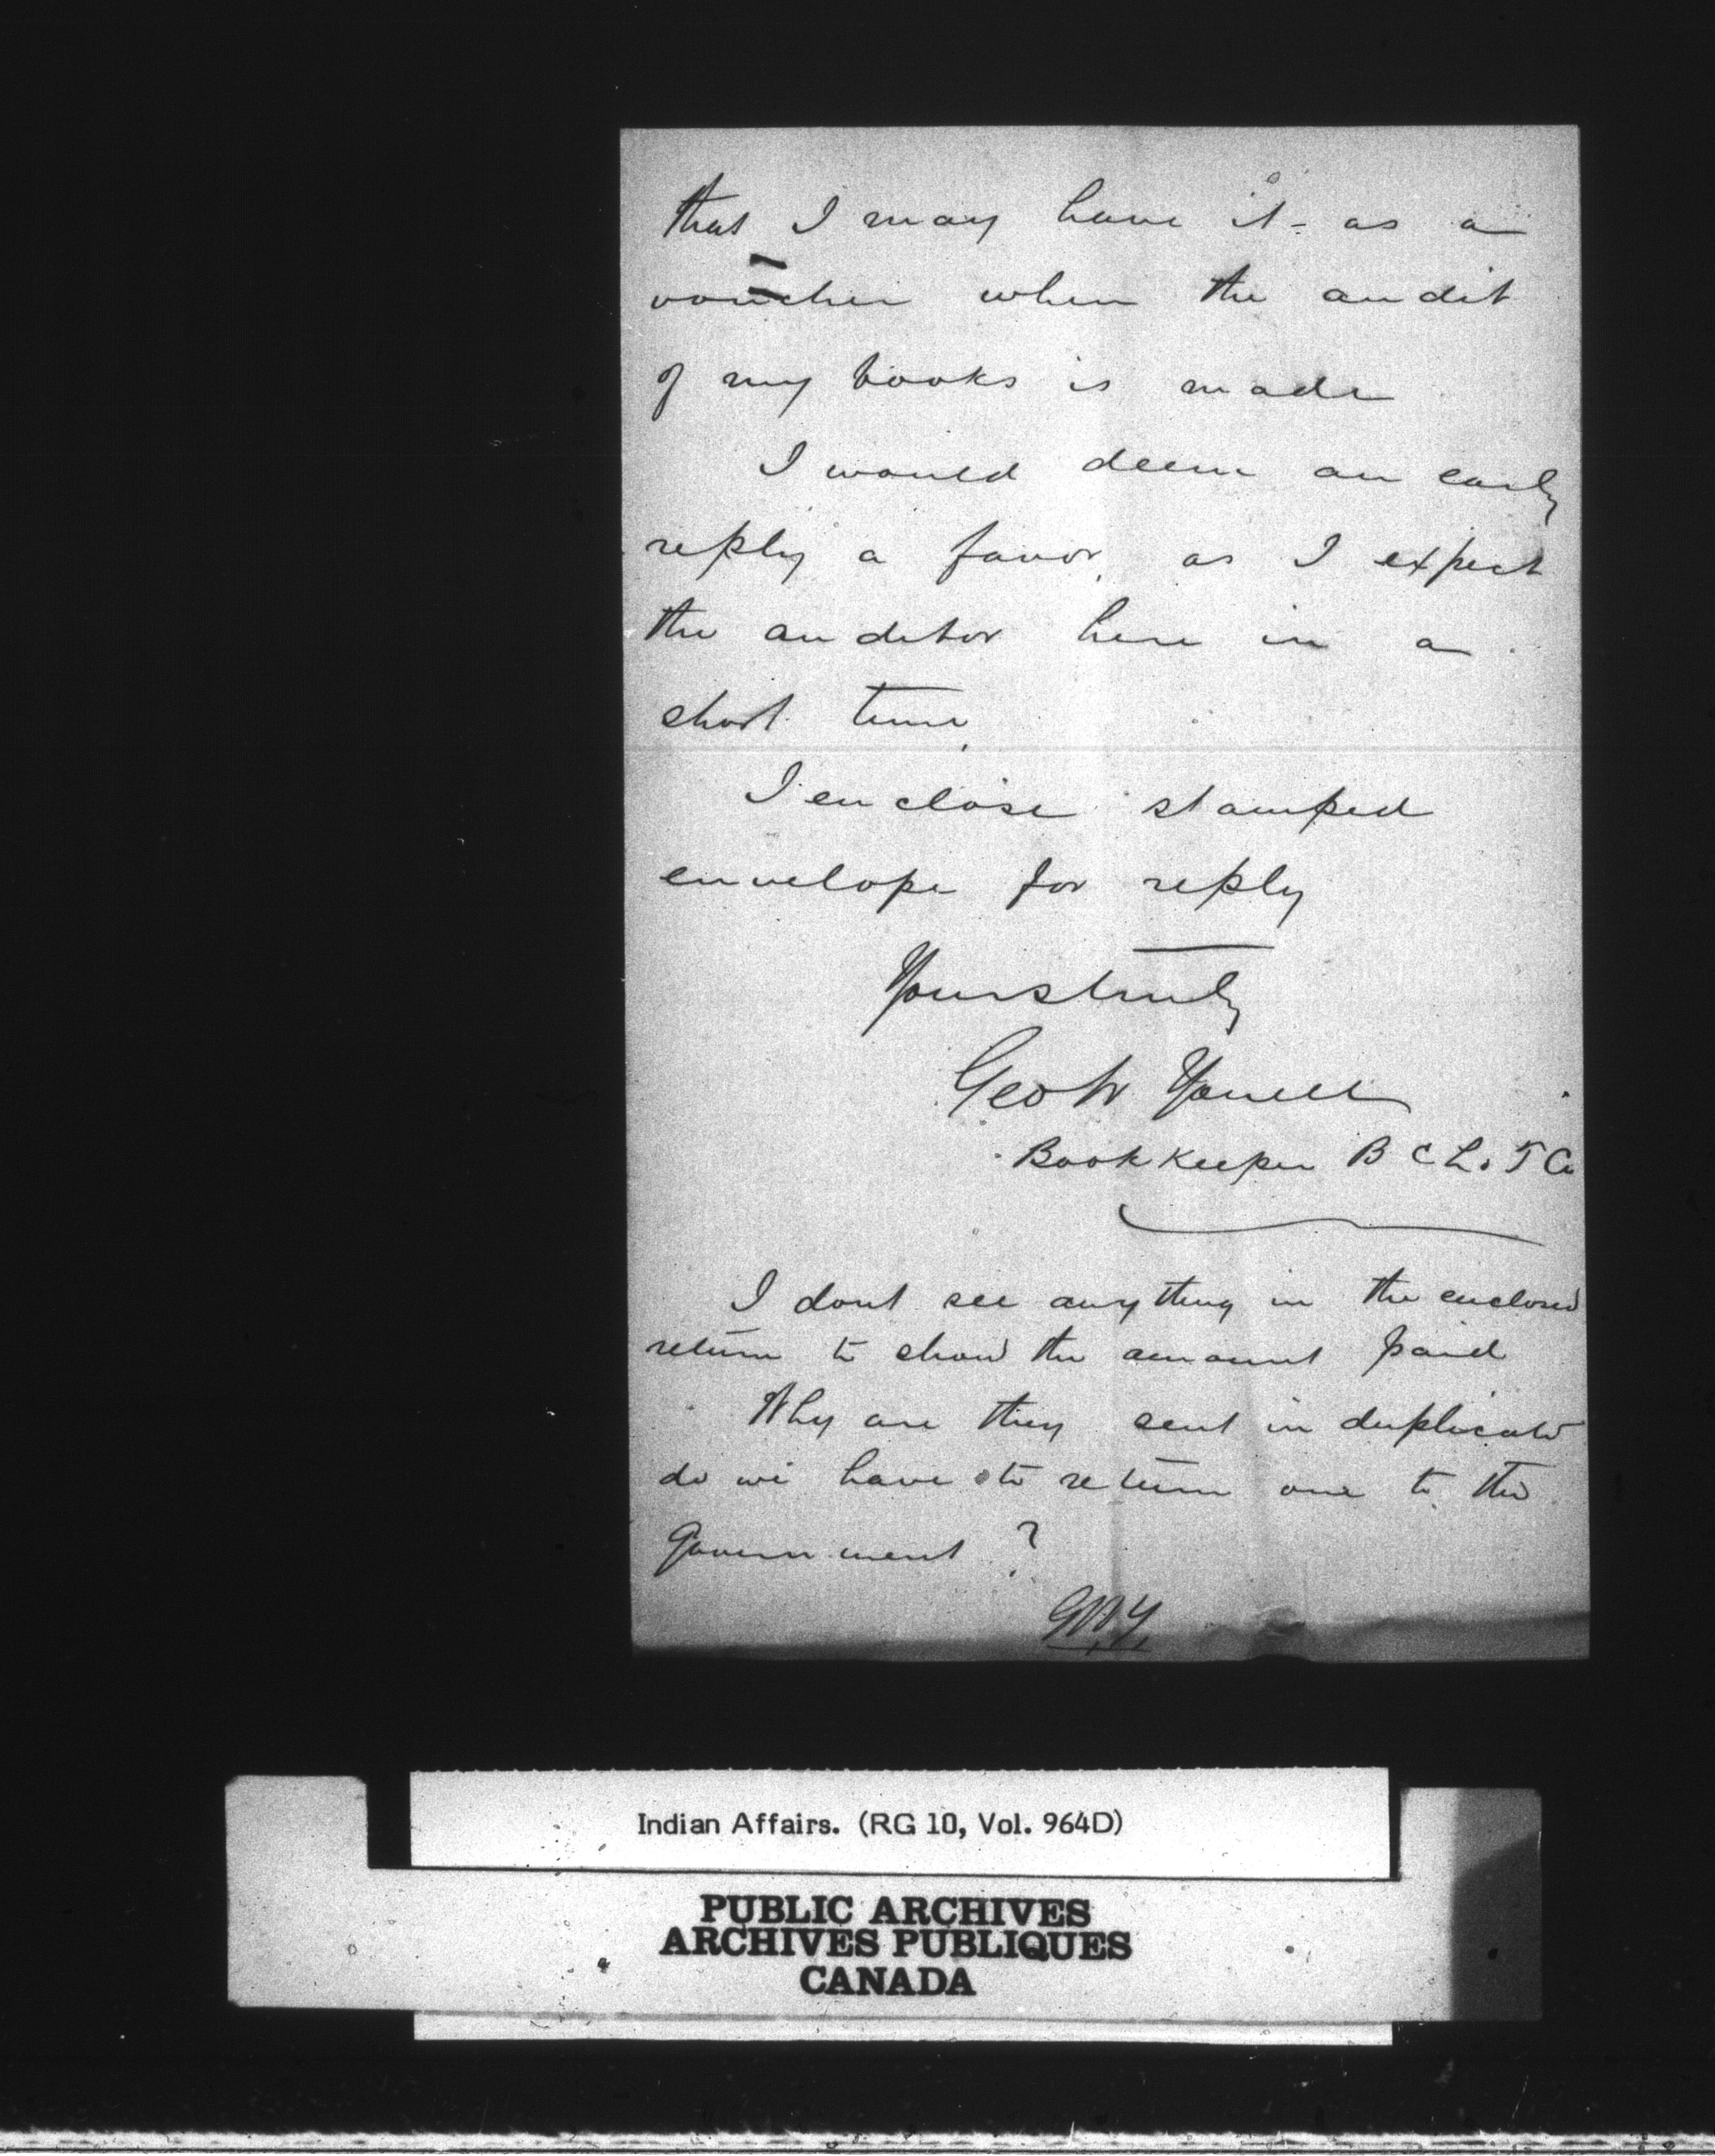 that I may have it - as a
voucher when the audit
of my books is made
I would deem an early
reply a favor, as I expect
the auditor here in a
short time,
I enclose stamped
envelope for reply
Yours truly
Geo W
Book Keeper B C L. & T Co
I dont see anything in the enclosed
return to show the amount paid
Why are they sent in duplicate
do we have to return one to the
Government ?
G.W.Y.
Indian Affairs. (RG 10, Vol. 964D)
PUBLIC ARCHIVES
ARCHIVES PUBLIQUES
CANADA